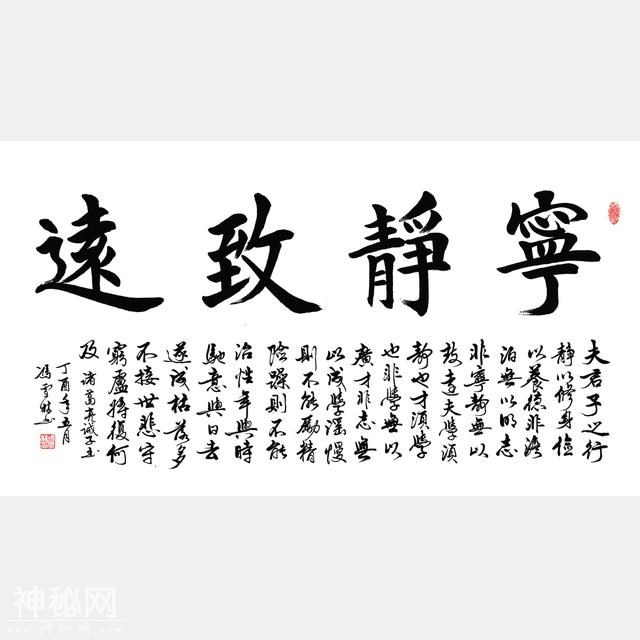 寧靜致遠
夫君子之行
靜以修身儉
以養德非澹
泊無以明志
非寧靜無以
致遠夫學須
靜也才須學
也非學無以
廣才非志無
以成學滛慢
則不能勵精
險躁則不能
治性年與時
馳意與日去
遂成枯落多
不接世悲守
窮廬將復何
及 諸葛亮誡子書
丁酉年五月
馮雪
神秘网